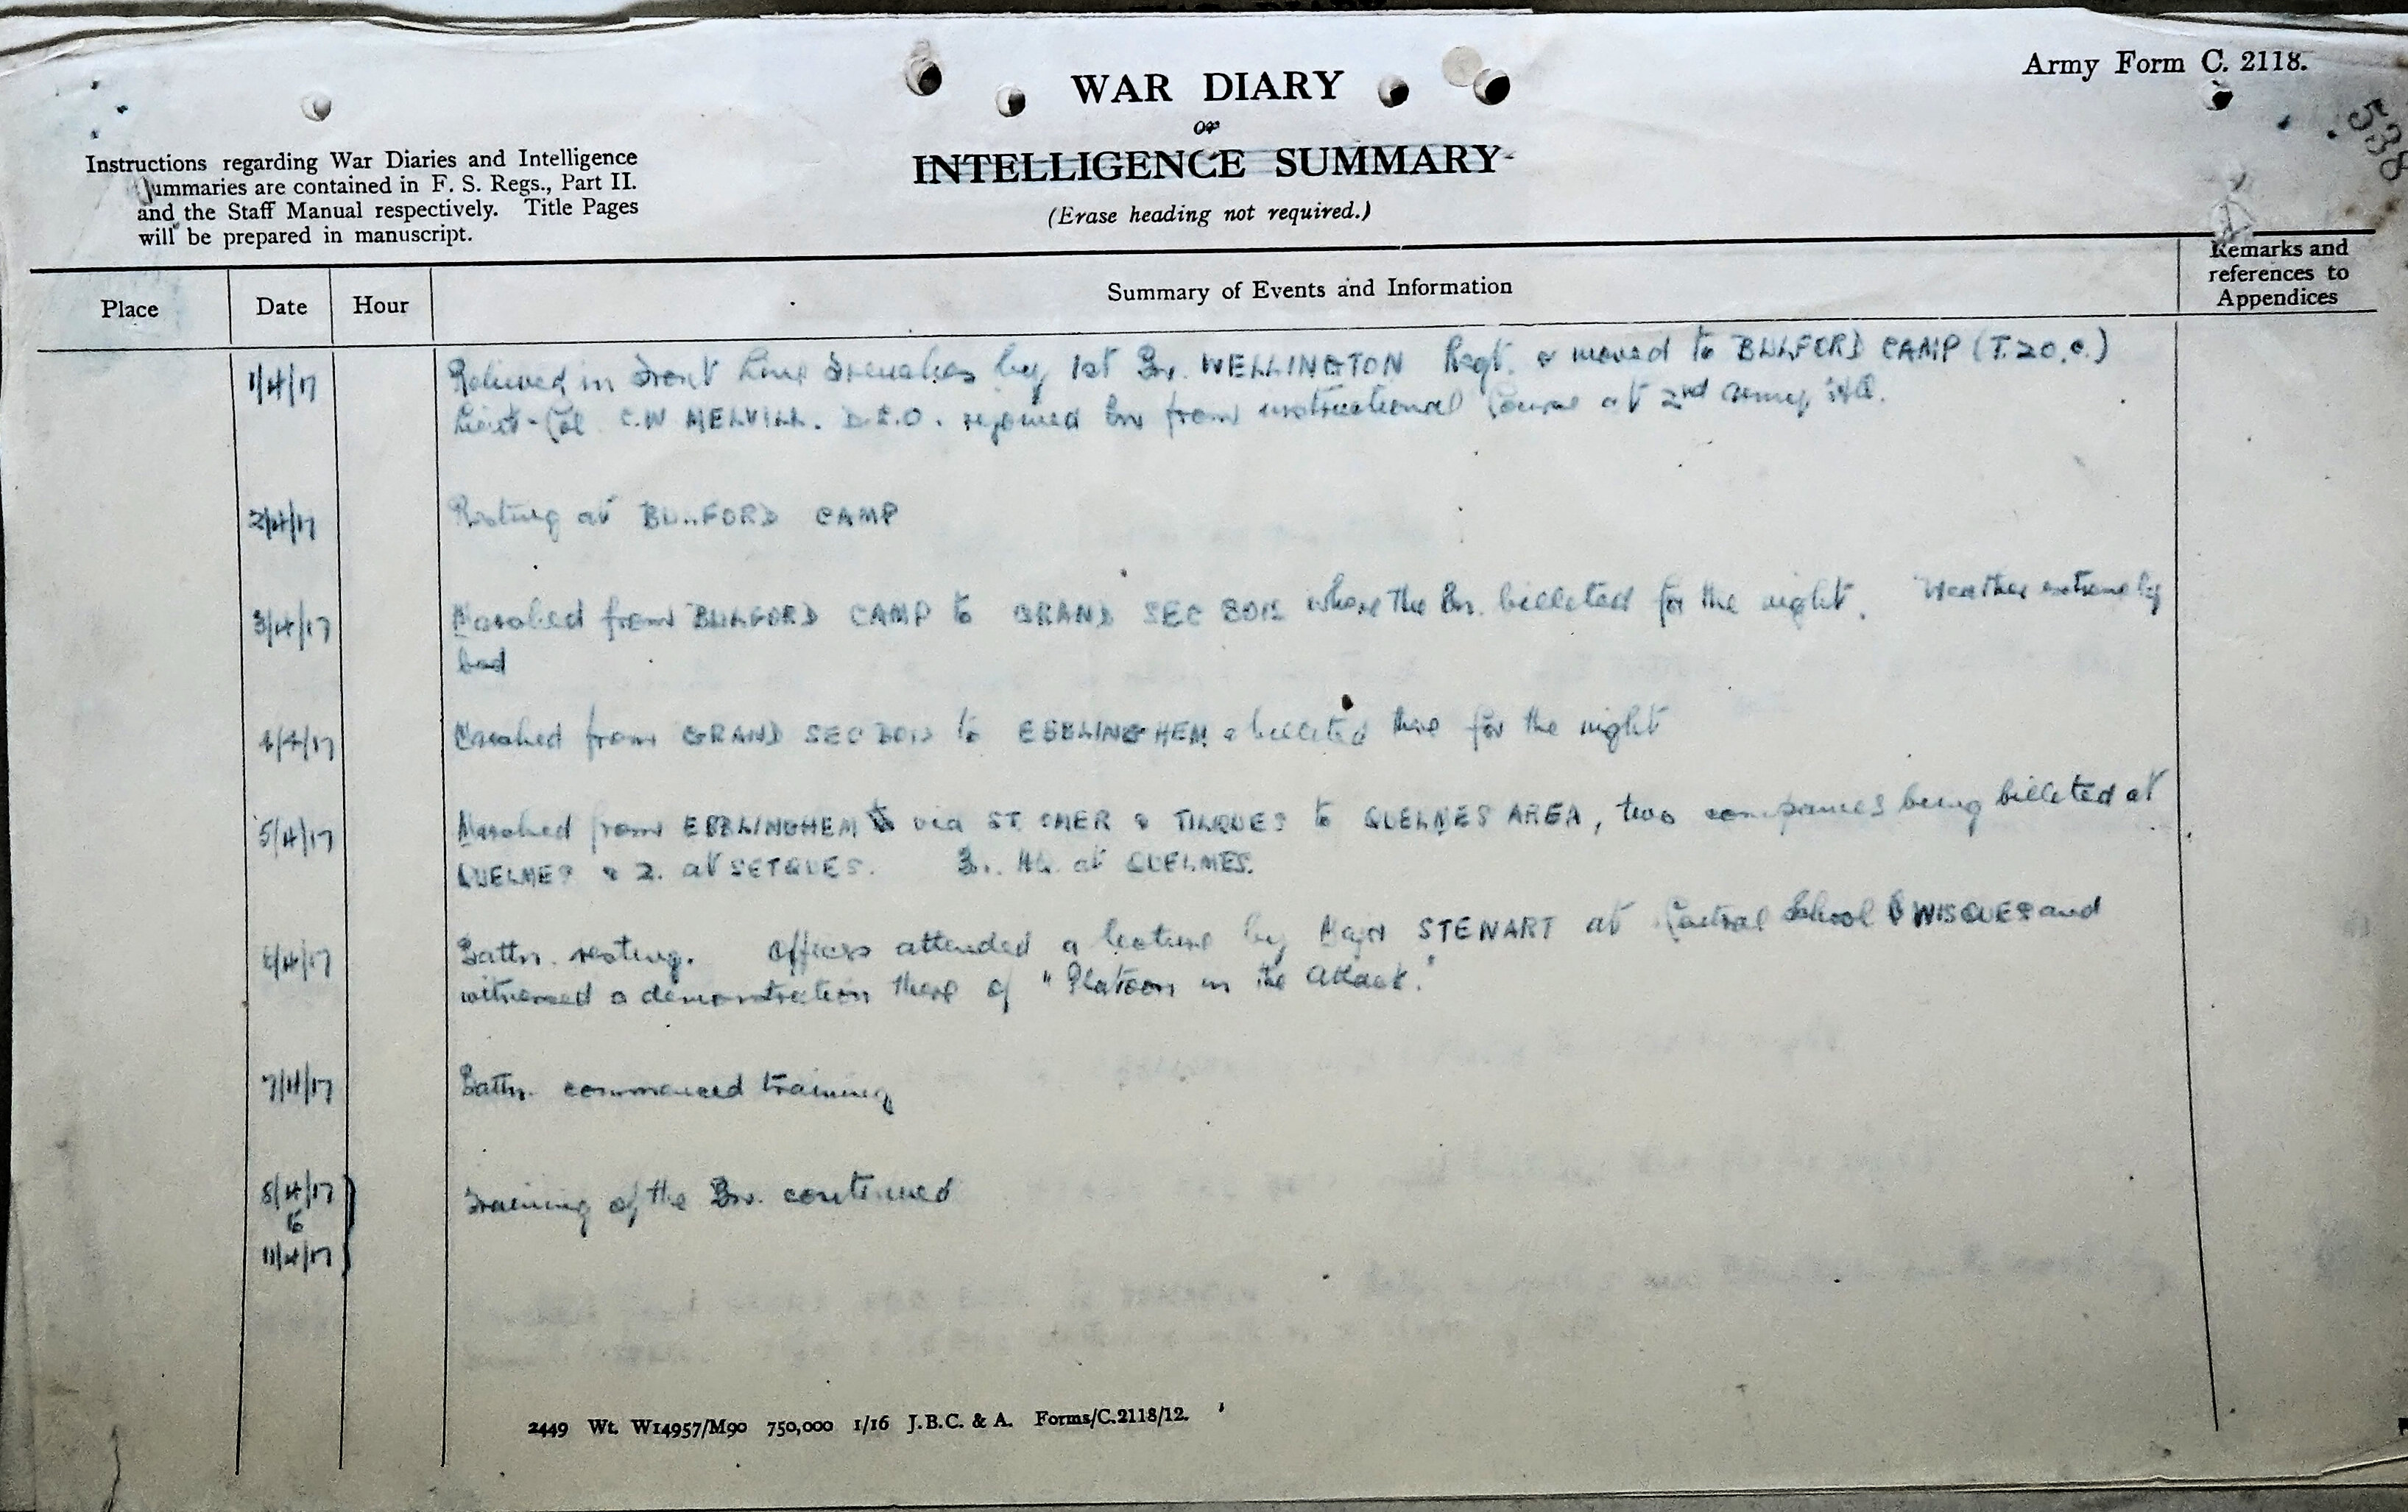 Army Form C. 2118.
538
WAR DIARY
or
INTELLIGENCE SUMMARY
(Erase heading not required.)
Instructions regarding War Diaries and Intelligence
Summaries are contained in F. S. Regs., Part II.
and the Staff Manual respectively. Title Pages
will be prepared in manuscript.
Place Date Hour Summary of Events and Information Remarks and
references to
Appendices
1/4/17 Relieved in Front Line Trenches by 1st Bn. WELLINGTON Regt. & moved to BULFORD CAMP (T.20.c.)
Lieut-Col C.W MELVILL. D.S.O. rejoined Bn from instructional Course at 2nd Army HQ.
2/4/17 Resting at BULFORD CAMP
3/4/17 Marched from BULFORD CAMP to GRAND SEC BOIS where the Bn. billeted for the night. Weather extremely
bad
4/4/17 Marched from GRAND SEC BOIS to EBBLINGHEM & billeted there for the night
5/4/17 Marched from EBBLINGHEM via ST. OMER & TILQUES to QUELMES AREA, two companies being billeted at
QUELMES & 2. at SETQUES. Bn. HQ. at QUELMES.
6/4/17 Battn. resting. Officers attended a lecture by Major STEWART at Central School WISQUES and
witnessed a demonstration there of "Platoon in the Attack."
7/4/17 Battn. commenced training
8/4/17
to
11/4/17 Training of the Bn. continued
2449 Wt. W14957/M90 750,000 1/16 J.B.C. & A. Forms/C.2118/12.